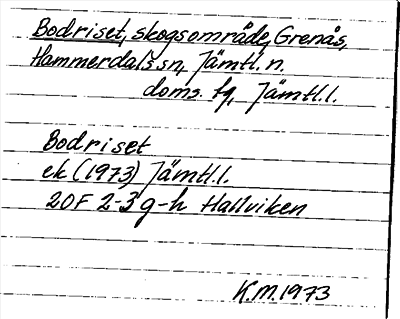 Bodriset, skogsområde, Grenås,
Hammerdals sn, Jämtl. n.
doms. fg, Jämtl.l.
Bodriset
ek (1973) Jämtl.l.
20F 2-3 g-h Hallviken
K.M. 1973